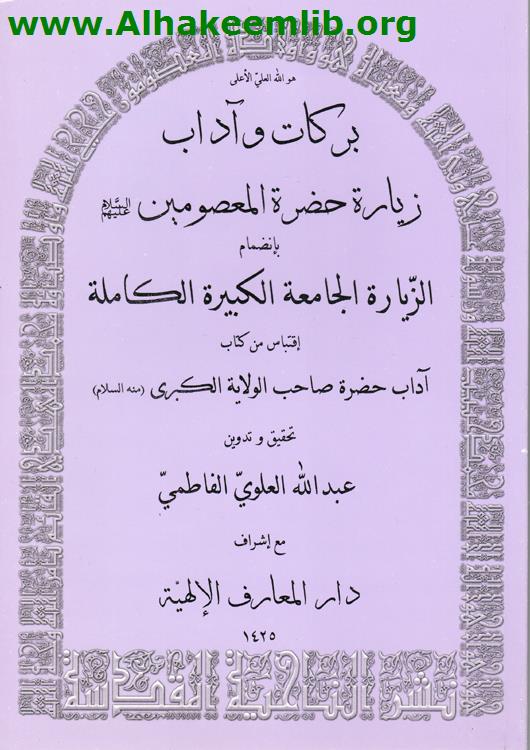 www.Alhakeemlib.org
هو الله العليّ الأعلى
بركات وآداب
زيارة حضرة المعصومين عليهم السَّلام
بإنضمام
الزّيارة الجامعة الكبيرة الكاملة
إقتباس من كتاب
آداب حضرة صاحب الولاية الكبرى (منه السلام)
تحقيق و تدوين
عبدالله العلويّ الفاطميّ
مع إشراف
دار المعارف الإلهيّة
١٤٢٥
نشر الناحية المقدسة